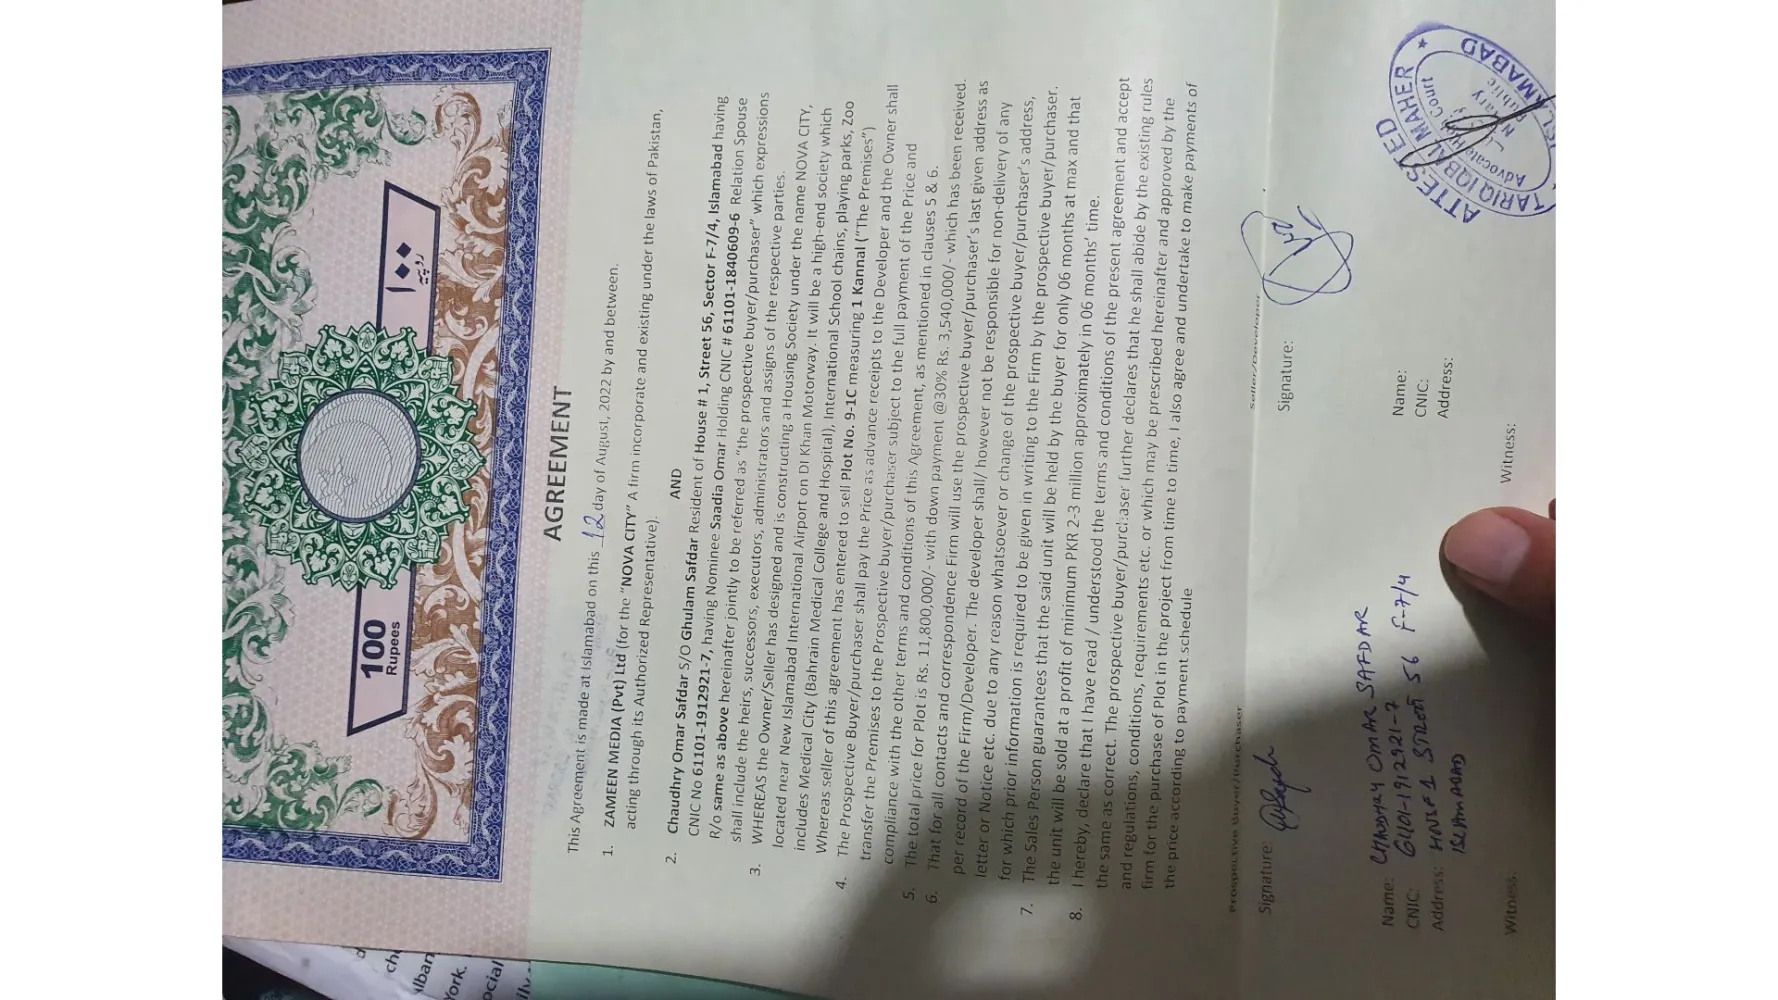 100
Rupees
۱۰۰
روپیہ
AGREEMENT
This Agreement is made at Islamabad on this 12 day of August, 2022 by and between.
1. ZAMEEN MEDIA (Pvt) Ltd (for the “NOVA CITY” A firm incorporate and existing under the laws of Pakistan,
acting through its Authorized Representative).
AND
2. Chaudhry Omar Safdar S/O Ghulam Safdar Resident of House # 1, Street 56, Sector F-7/4, Islamabad having
CNIC No 61101-1912921-7, having Nominee Saadia Omar Holding CNIC # 61101-1840609-6 Relation Spouse
R/o same as above hereinafter jointly to be referred as “the prospective buyer/purchaser” which expressions
shall include the heirs, successors, executors, administrators and assigns of the respective parties.
3. WHEREAS the Owner/Seller has designed and is constructing a Housing Society under the name NOVA CITY,
located near New Islamabad International Airport on DI Khan Motorway. It will be a high-end society which
includes Medical City (Bahrain Medical College and Hospital), International School chains, playing parks, Zoo
Whereas seller of this agreement has entered to sell Plot No. 9-1C measuring 1 Kannal (“The Premises”)
4. The Prospective Buyer/purchaser shall pay the Price as advance receipts to the Developer and the Owner shall
transfer the Premises to the Prospective buyer/purchaser subject to the full payment of the Price and
compliance with the other terms and conditions of this Agreement, as mentioned in clauses 5 & 6.
5. The total price for Plot is Rs. 11,800,000/- with down payment @30% Rs. 3,540,000/- which has been received.
6. That for all contacts and correspondence Firm will use the prospective buyer/purchaser's last given address as
per record of the Firm/Developer. The developer shall/ however not be responsible for non-delivery of any
letter or Notice etc. due to any reason whatsoever or change of the prospective buyer/purchaser's address,
for which prior information is required to be given in writing to the Firm by the prospective buyer/purchaser.
7. The Sales Person guarantees that the said unit will be held by the buyer for only 06 months at max and that
the unit will be sold at a profit of minimum PKR 2-3 million approximately in 06 months' time.
8. I hereby, declare that I have read / understood the terms and conditions of the present agreement and accept
the same as correct. The prospective buyer/purchaser further declares that he shall abide by the existing rules
and regulations, conditions, requirements etc. or which may be prescribed hereinafter and approved by the
firm for the purchase of Plot in the project from time to time, I also agree and undertake to make payments of
the price according to payment schedule
Prospective Buyer/Purchaser
Seller/Developer
Signature:
Signature:
Name: CHAUDHRY OMAR SAFDAR
CNIC: 61101-1912921-7
Address: HOUSE 1 STREET 56 F-7/4
ISLAMABAD
Name:
CNIC:
Address:
Witness:
Witness:
ATTESTED
TARIQ IQBAL MAHER
Advocate High Court
Notary Public
ISLAMABAD